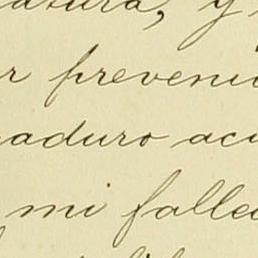 atura, y
r preveni
maduro acu
mi fallec